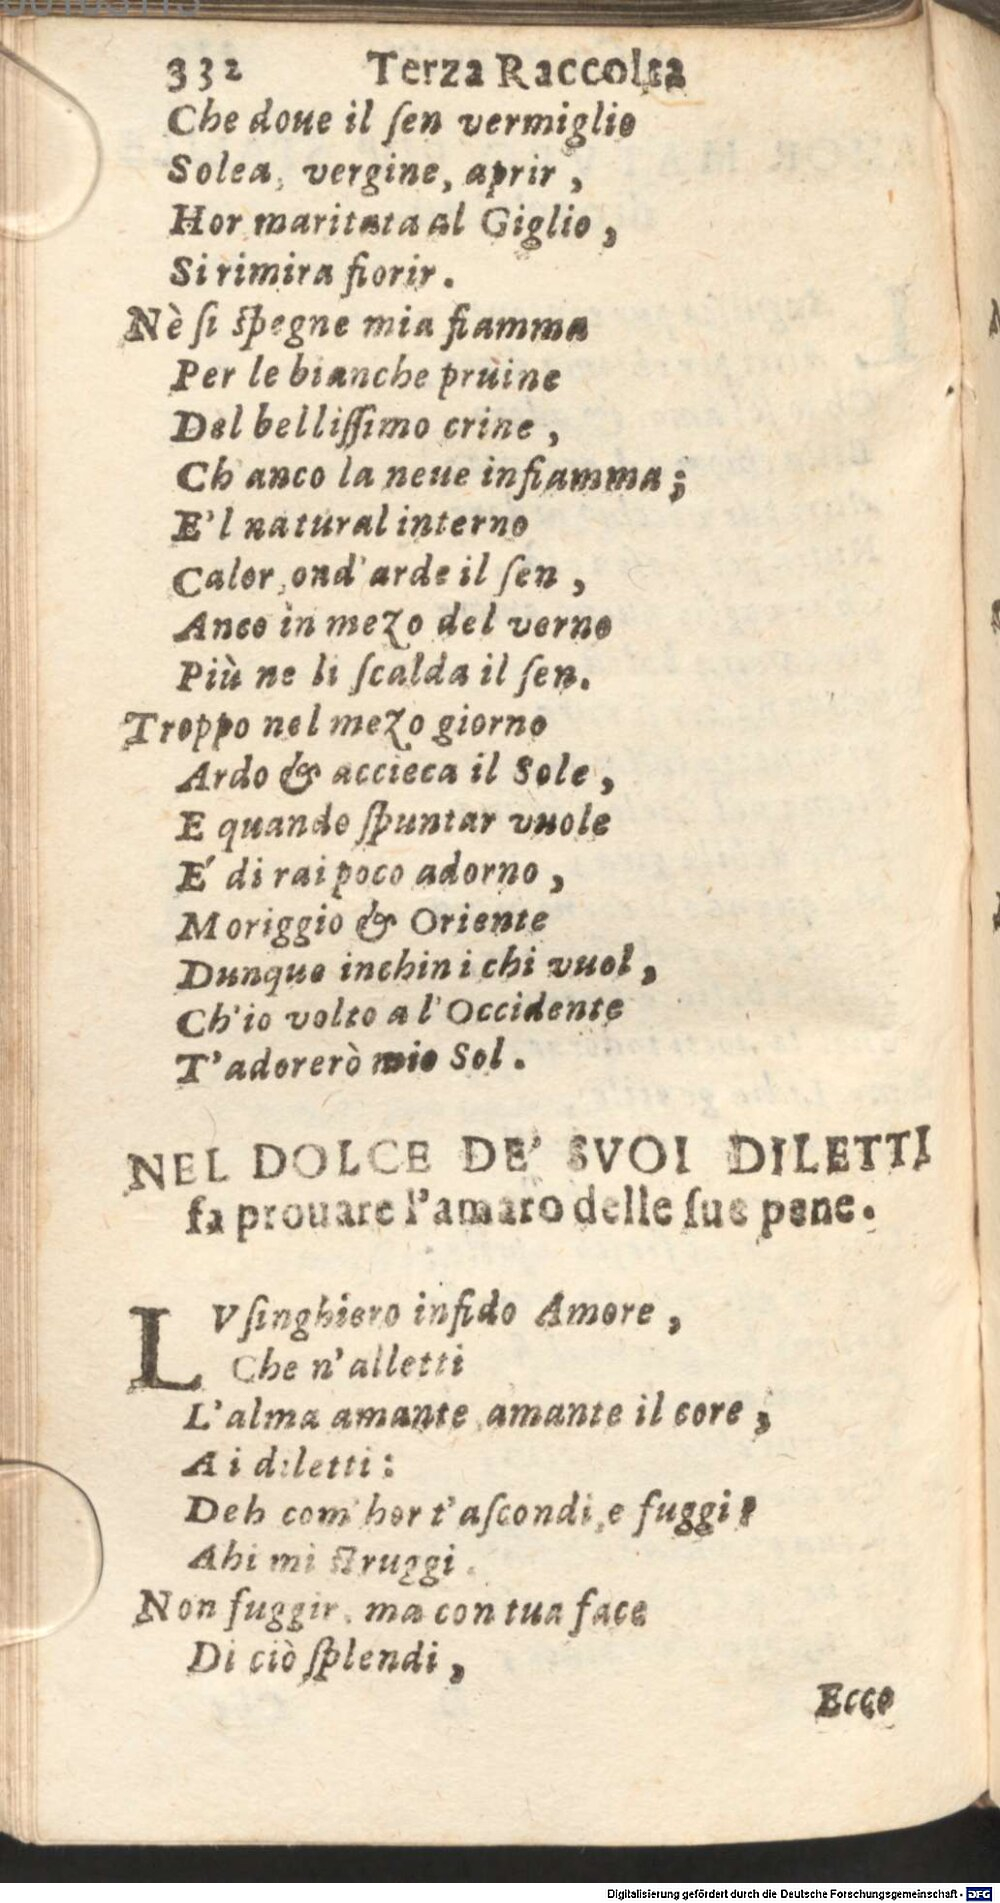 332 Terza Raccolta
Che doue il ſen vermiglio
Solea, vergine, aprir,
Hor maritata al Giglio,
Si rimira fiorir.
Nè ſi ſpegne mia fiamma
Per le bianche pruine
Del belliſſimo crine,
Ch'anco la neue infiamma;
E'l natural interno
Calor, ond'arde il ſen,
Anco in mezo del verno
Più ne li ſcalda il ſen.
Troppo nel mezo giorno
Ardo & accieca il Sole,
E quando ſpuntar vuole
E' di rai poco adorno,
Moriggio & Oriente
Dunque inchini chi vuol,
Ch'io volto a l'Occidente
T'adorerò mio Sol.
NEL DOLCE DE' SVOI DILETTI
fa prouare l'amaro delle ſue pene.
LVſinghiero infido Amore,
Che n'alletti
L'alma amante, amante il core,
A i diletti:
Deh com'hor t'aſcondi, e fuggi?
Ahi mi ſtruggi.
Non fuggir, ma con tua face
Di ciò ſplendi,
Ecco
Digitalisierung gefördert durch die Deutsche Forschungsgemeinschaft - DFG